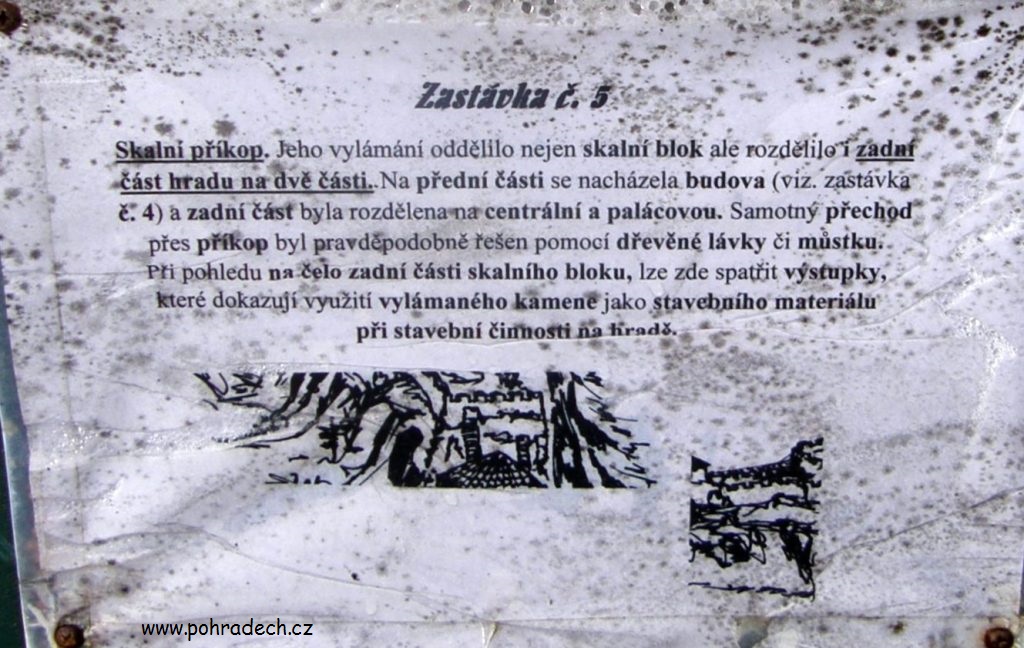 Zastávka č. 5
Skalní příkop. Jeho vylámání oddělilo nejen skalní blok ale rozdělilo i zadní
část hradu na dvě části. Na přední části se nacházela budova (viz. zastávka
č. 4) a zadní část byla rozdělena na centrální a palácovou. Samotný přechod
přes příkop byl pravděpodobně řešen pomocí dřevěné lávky či můstku.
Při pohledu na čelo zadní části skalního bloku, lze zde spatřit výstupky,
které dokazují využití vylámaného kamene jako stavebního materiálu
při stavební činnosti na hradě.
www.pohradech.cz